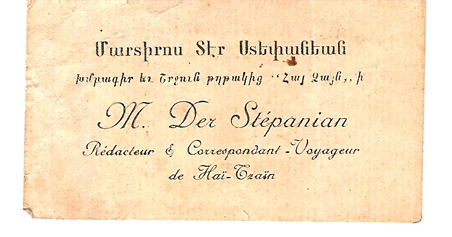 Մարտիրոս Տէր Ստեփանեան
Խմբագիր եւ Շրջուն թղթակից "Հայ Ձայն„ի
M. Der Stépanian
Rédacteur & Correspondant-Voyageur
de Haï-Tzaïn